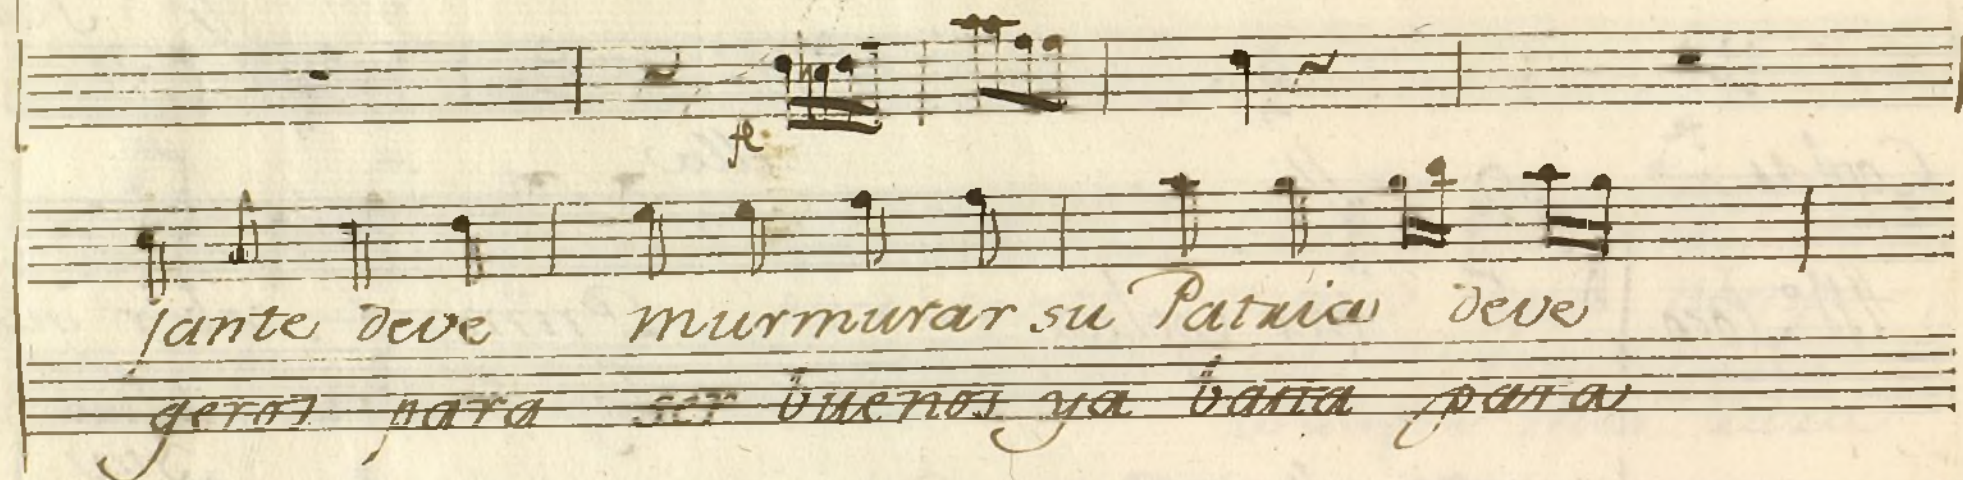 fe
jante deve murmurar su Patria deve
geros para ser buenos ya basta para